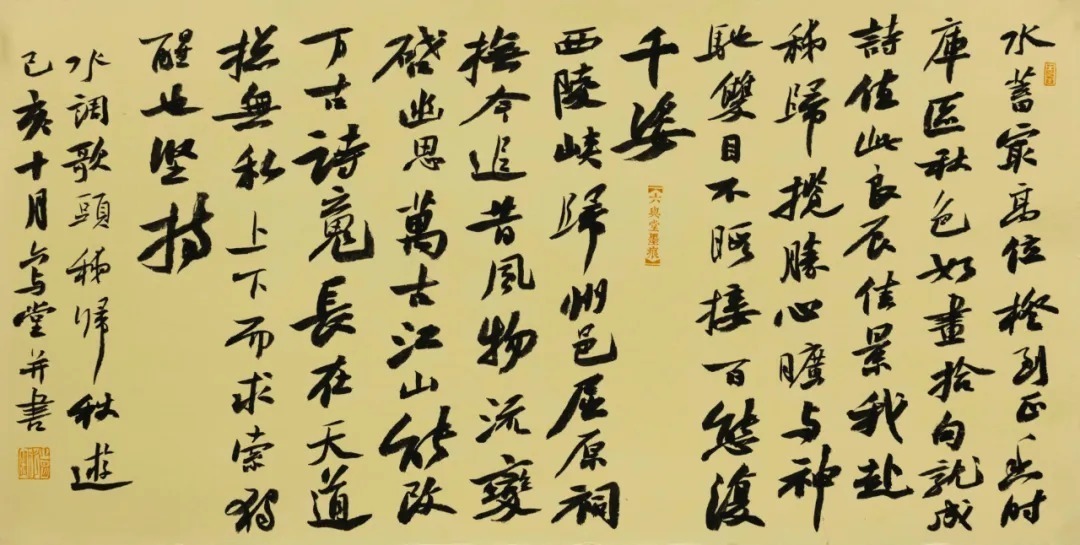 水蓄最高位橙到正时
庫區秋色如畫拾句就成
詩值此良辰佳景我赴
秭歸攬勝心曠与神
馳雙目不暇接百態復
千姿
【六與堂墨痕】
西陵峽歸州邑屈原祠
撫今追昔風物流變
啓幽思萬古江山能改
万古詩魂長在天道
總無私上下而求索獨
醒也堅持
水調歌頭秭归秋遊
己亥十月六与堂并書